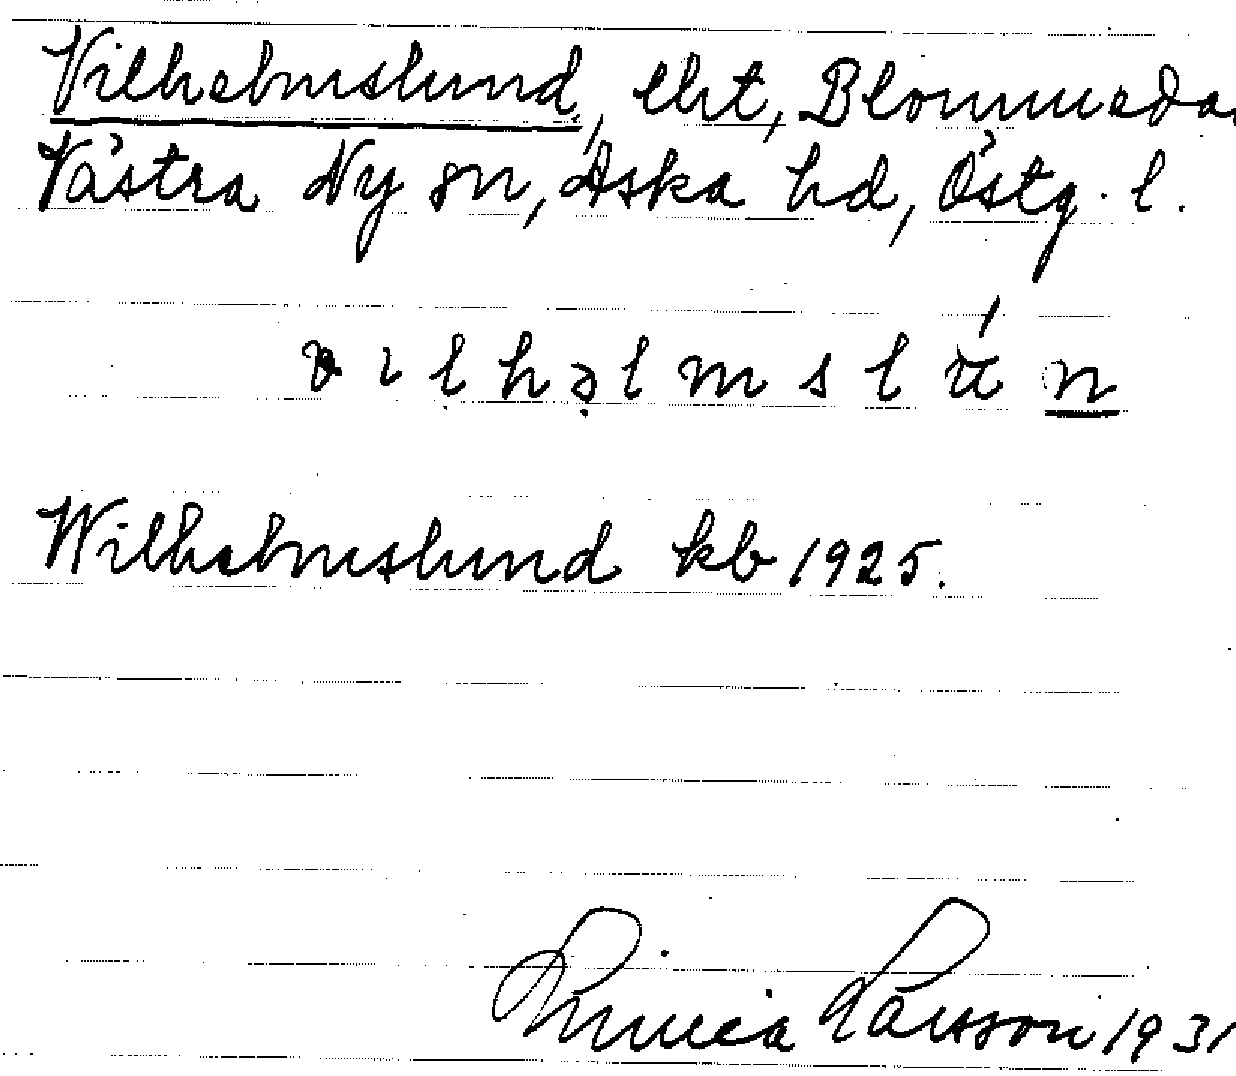 Vilhelmslund, lht, Blommeda,
Västra Ny sn, Aska hd, Östg. l.
Wilhelmslund kb 1925.
Linnea Larsson 1931